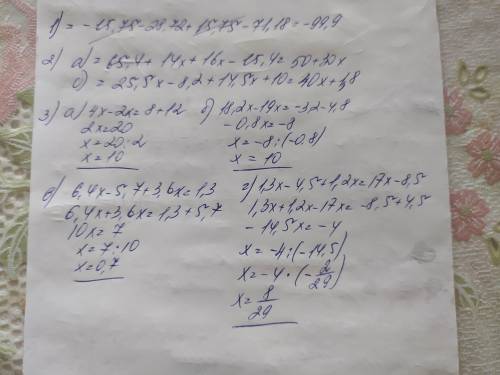 1) = -15,75-28,72+15,75-71,18=-99,9
2) а)= 65,4+14x+16x-15,4=50+30x
б)= 25,5x-8,2+14,5x+10=40x+1,8
3) а) 4x-2x=8+12
2x=20
x=20:2
x=10
б) 18,2x-19x=-3,2-4,8
-0,8x=-8
x=-8:(-0,8)
x=10
в) 6,4x-5,7+3,6x=1,3
6,4x+3,6x=1,3+5,7
10x=7
x=7:10
x=0,7
г) 1,3x-4,5+1,2x=17x-8,5
1,3x+1,2x-17x=-8,5+4,5
-14,5x=-4
x=-4:(-14,5)
x=-4·(-2/29)
x=8/29